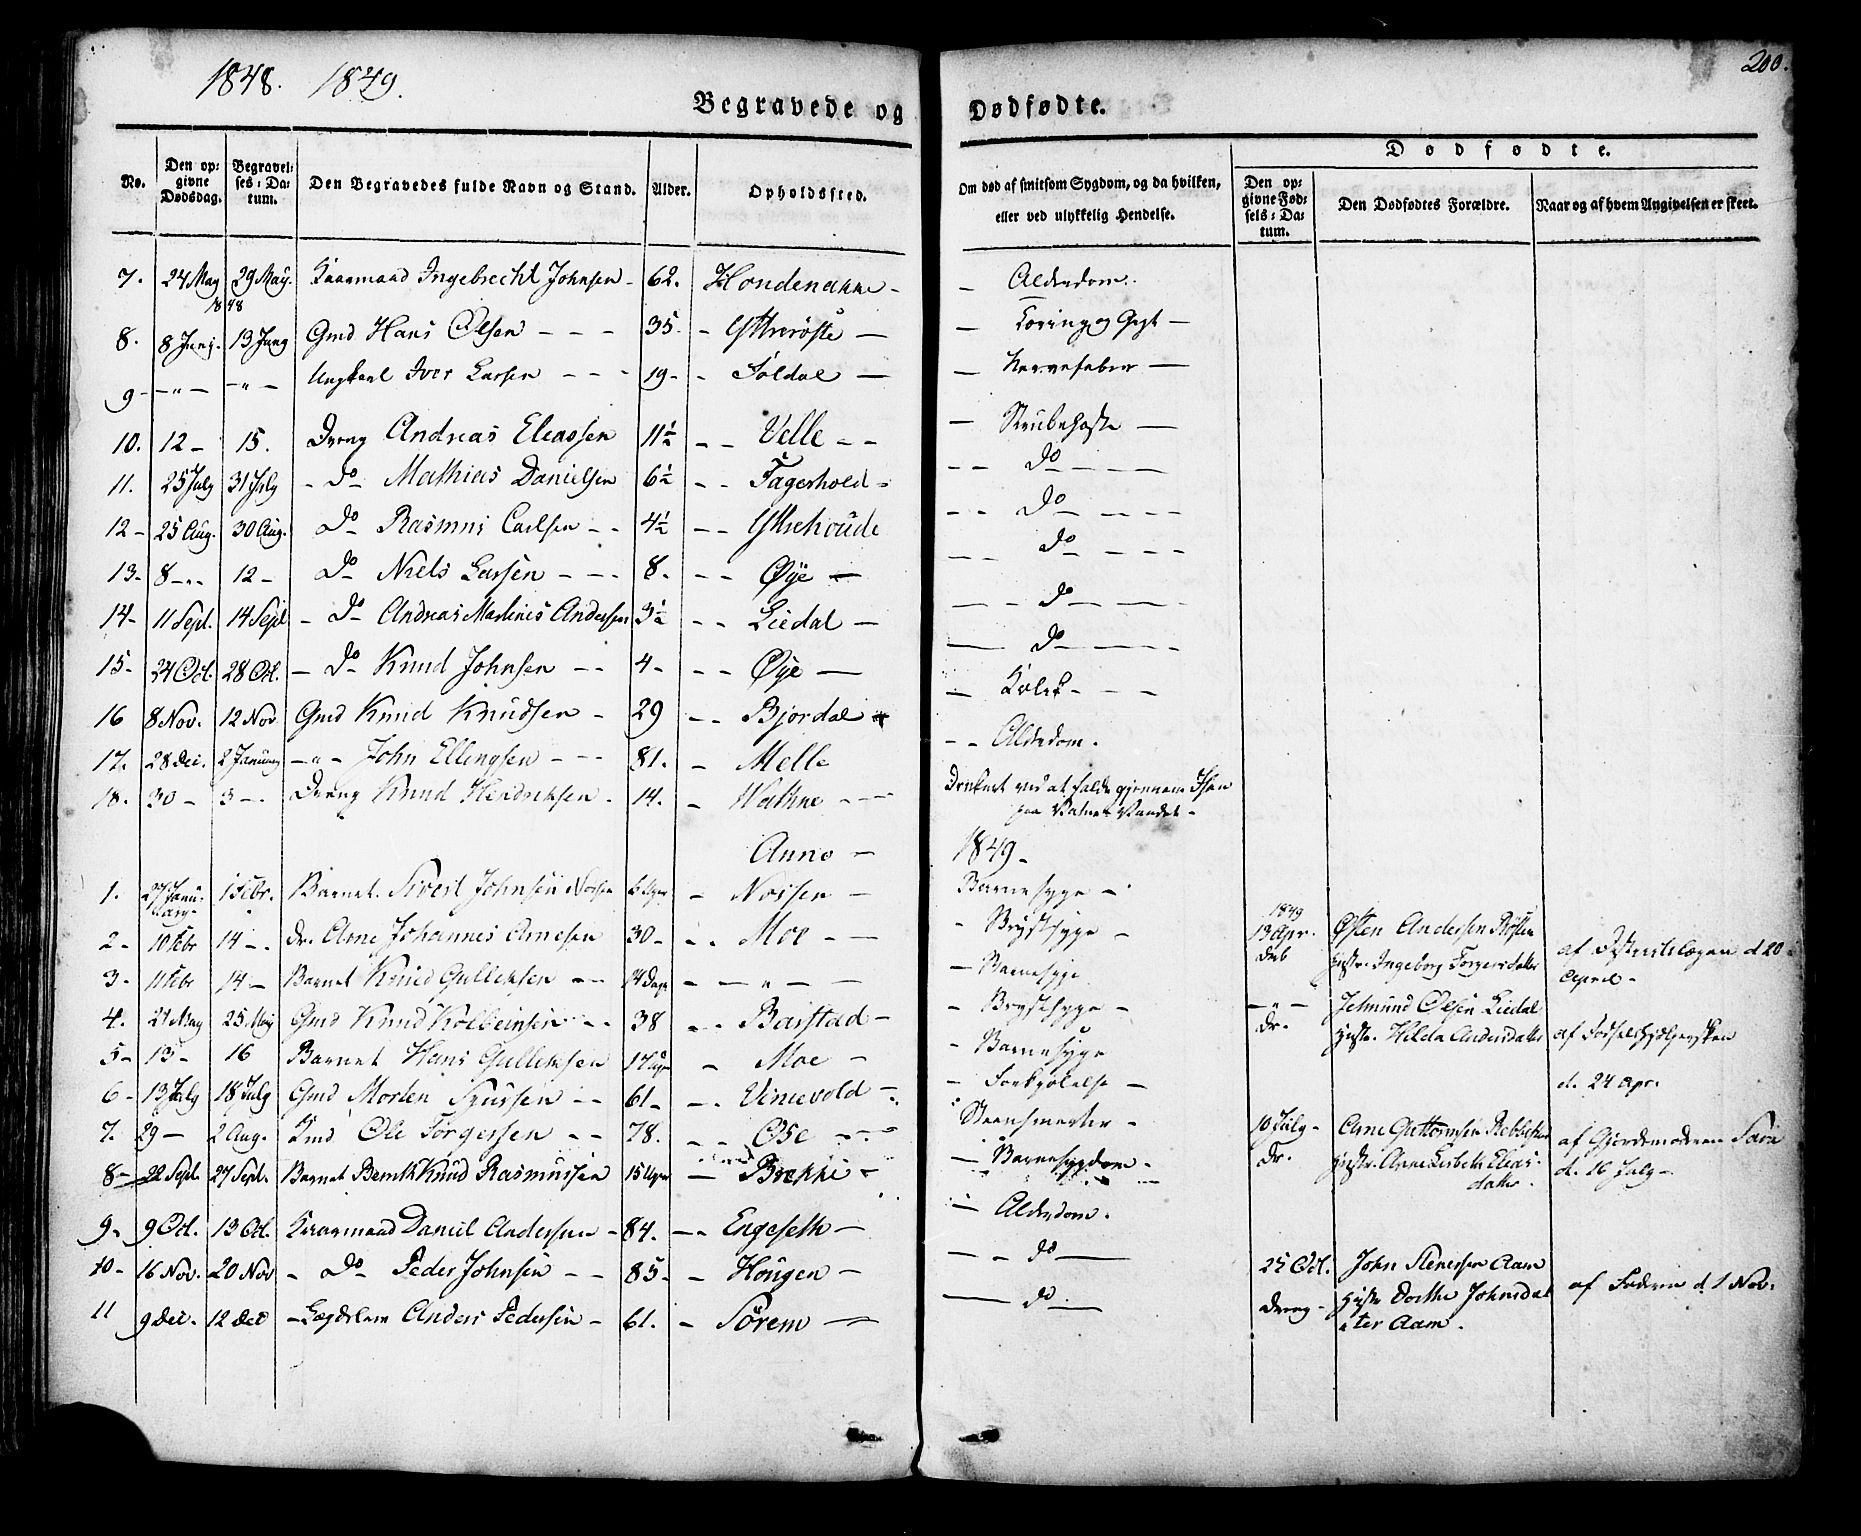 1848. 1849.
200.
Begravede og Dødfødte.
No.
Den opgivne Dødsdag.
Begravelses-Datum.
Den Begravedes fulde Navn og Stand.
Alder.
Opholdssted.
Om død af smitsom Sygdom, og da hvilken, eller ved ulykkelig Hendelse.
Dødfødte.
Den opgivne Fødsels-Datum.
Den Dødfødtes Forældre.
Naar og af hvem Angivelsen er skeet.
7. 24 May 29 May. Kaarmand Ingebrecht Johnsen - 62. Hondenakke - - Alderdom.
1848
8. 8 Junj. 13 Junj Gmd Hans Olsen - - - 35. - Ytteröste - - Tæring og Gigt -
9 - - " - - " - Ungkarl Iver Larsen - - - 19 - - Soldal - - Nervefeber -
10. 12 - 15. Dreng Andreas Eleassen 11½ - - Velle - - - Strubehoste -
11. 25 July 31 July - Do Mathias Danielsen 6½ - - Fagerhold - - - Do - - -
12 - 25 Aug. 30 Aug. Do Rasmus Carlsen - - 4½ - - Yttrehoude - - Do - - -
13 - 8 - - 12 - Do Niels Larsen - - - 8. - - Øye - - - Do - - -
14 - 11 Sept. 14 Sept - Do Andreas Martinus Andersen 3½ - - Liedal - - - Do - - -
15 - 24 Oct. 28 Oct. - Do Knud Johnsen - - 4 - - - Øye - - Do - - -
16 8 Nov. 12 Nov. Gmd Knud Knudsen - 29 - - Bjordal - Kolik - - -
17. 28 Dec. 2 January - " - John Ellingsen - - - 81. - Melle - - Alderdom.
18. 30 - 3 - - Dreng Knud Hendriksen - 14. - Vathne - - - Druknet ved at falde gjennem Isen
paa Vatne Vandet -
Anno - 1849 -
1. 27 Januuary - 1 Febr. Barnet Sivert Johnsen Nossen 6 Uger - Nossen - Barnesyge -
2 - 10 Febr 14 - - dr. Arne Johannes Arnesen 30 - - - Moe - - - Brystsyge -
3 - 11 Febr 14 - Barnet Knud Gulleksen - - 14 Dage - - " - - - Barnesyge
4. 21 May 25 May Gmd Knud Kolbeinsen - - 38 - - Barstad - - Brystsyge -
5 - 13 - 16 Barnet Hans Gulleksen 17 Uger - Moe - - Barnesyge
6 - 13 July 18 July Gmd Morten 61 - - - Vinievold - - Forkjölelse -
7. 29 - 2 Aug. Kmd Ole Torgersen - - 78. - - Ose - - - Steensmerter -
8 - 22 Sept. 27 Sept. Barnet Knud Rasmussen 15 Uger - Brekke - - Barnesygdom -
9 - 9 Oct. 13 Oct. Kaarmand Daniel Andersen - 84. - - Engeseth - - Alderdom.
10 - 16 Nov. 20 Nov - Do Peder Johnsen - - 85 - - Hougen - - - do -
11 9 Dec. 12 Dec - Lægdslem Anders Pedersen - 61. - Sörem - - do -
1849
13 Apr. Østen Andersen Röste
hustr. Ingeborg Torgersdatter
af Districtslægen d 20
April -
- " - Jetmund Olsen Liedal
Dr. hustr. Hilda Andersdatter af Fødselshjelpersken
d. 24 Apr.
10 July - Arne Guttormsen Rebbestad
Dr. hustr. Anne Lisbeth Eliasdatter.
af Gjordemoderen Sara
d. 16 July -
25 Oct. John Stenersen Aam
Dreng - hustr Dorthe Johnsdatter Aam.
af Faderen d. 1 Nov.